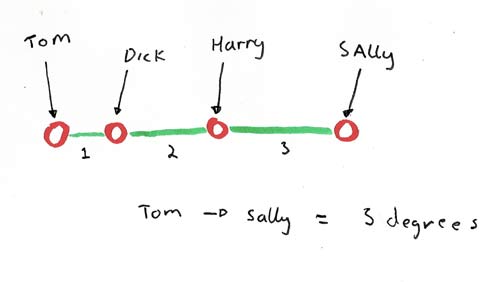 Tom
Dick
Harry
SAlly
1
2
3
Tom → Sally = 3 degrees